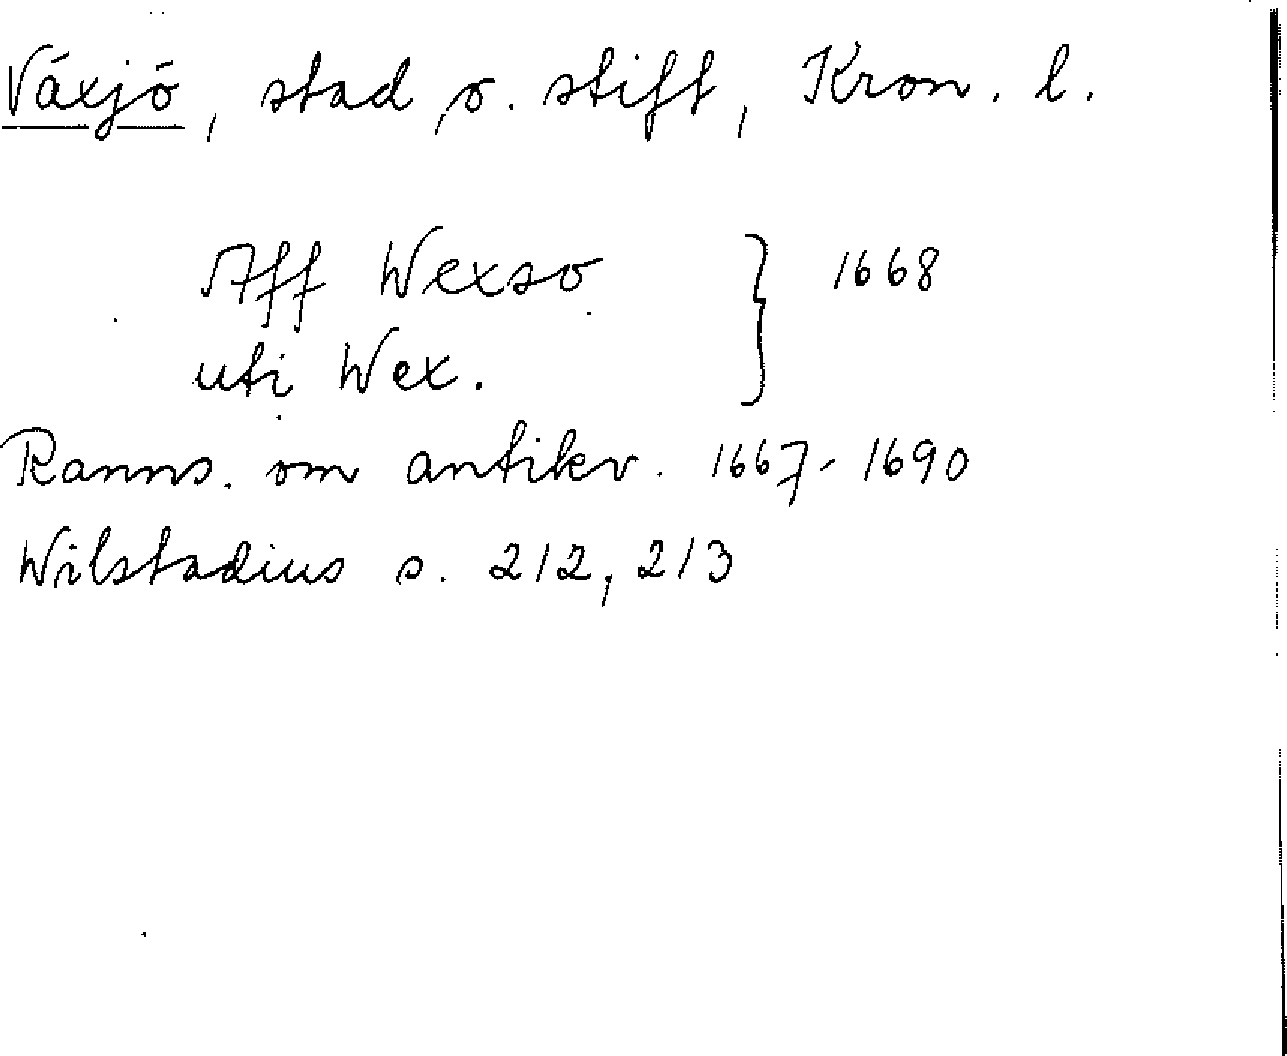 Växjö, stad o. stift, Kron. l.
Aff Wexso } 1668
uti Wex.
Ranns. om antikv. 1667-1690
Wilstadius s. 212, 213